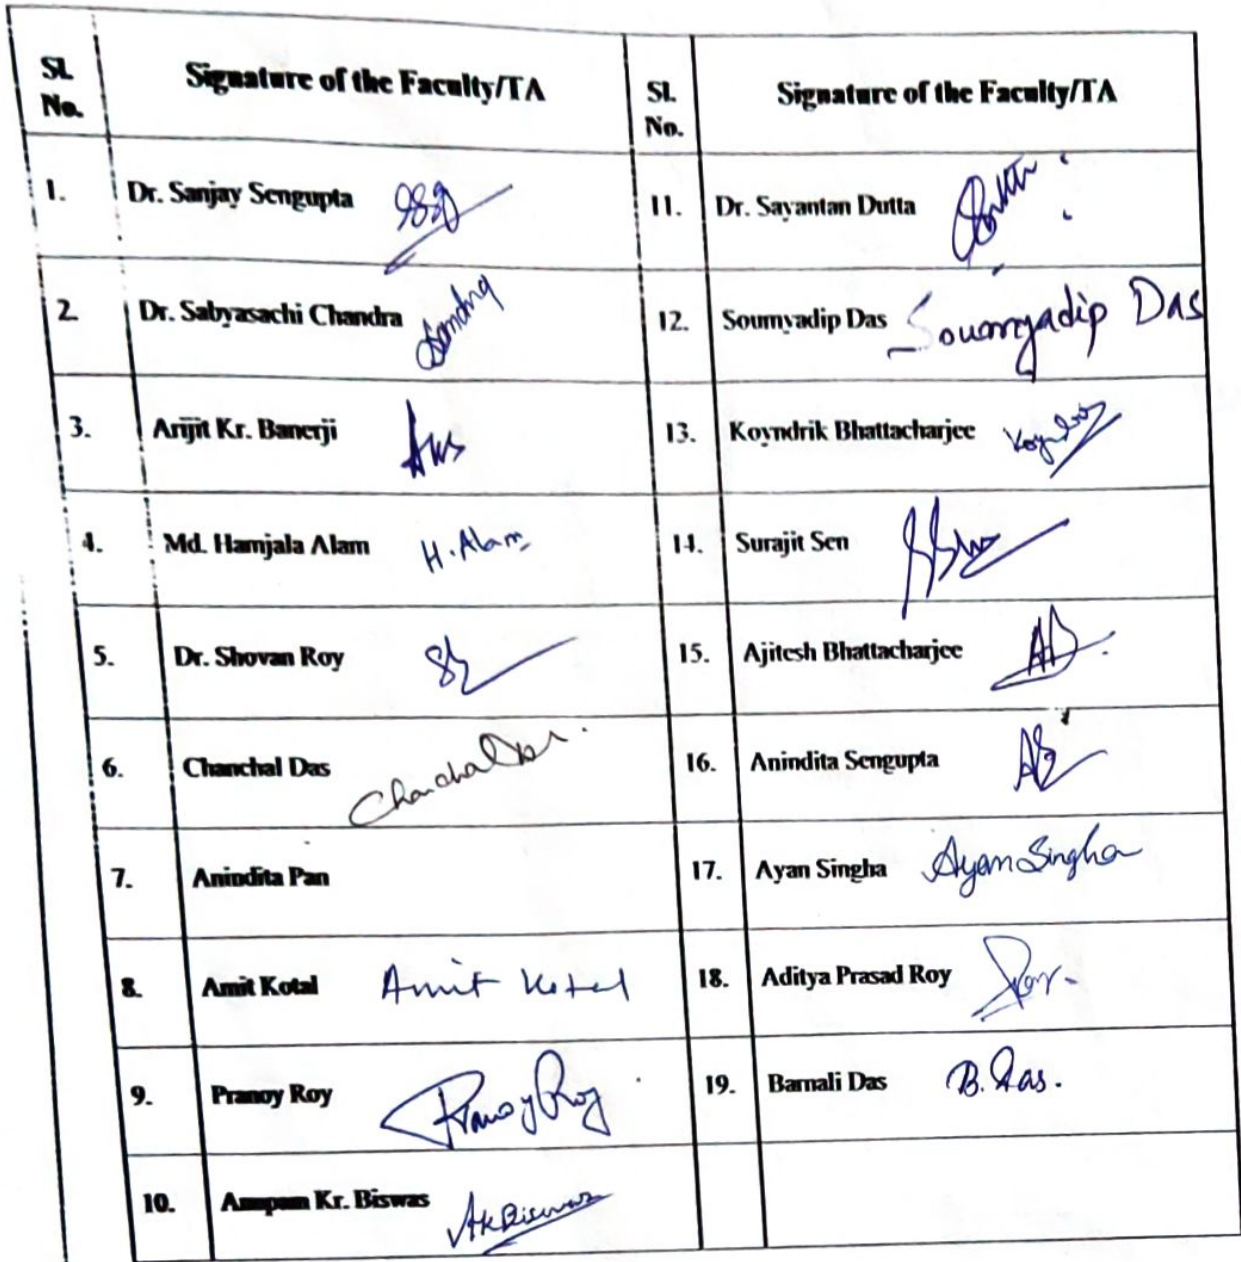 Sl. No. Signature of the Faculty/TA Sl. No. Signature of the Faculty/TA
1. Dr. Sanjay Sengupta 11. Dr. Sayantan Dutta
2. Dr. Sabyasachi Chandra 12. Soumyadip Das Soumyadip Das
3. Arijit Kr. Banerji 13. Koyndrik Bhattacharjee
4. Md. Hamjala Alam H. Alam 14. Surajit Sen
5. Dr. Shovan Roy 15. Ajitesh Bhattacharjee
6. Chanchal Das Chanchal Das. 16. Anindita Sengupta
7. Anindita Pan 17. Ayan Singha Ayan Singha
8. Amit Kotal Amit Kotal 18. Aditya Prasad Roy
9. Pranoy Roy Pranoy Roy 19. Barnali Das B. Das.
10. Anupam Kr. Biswas AKBiswas